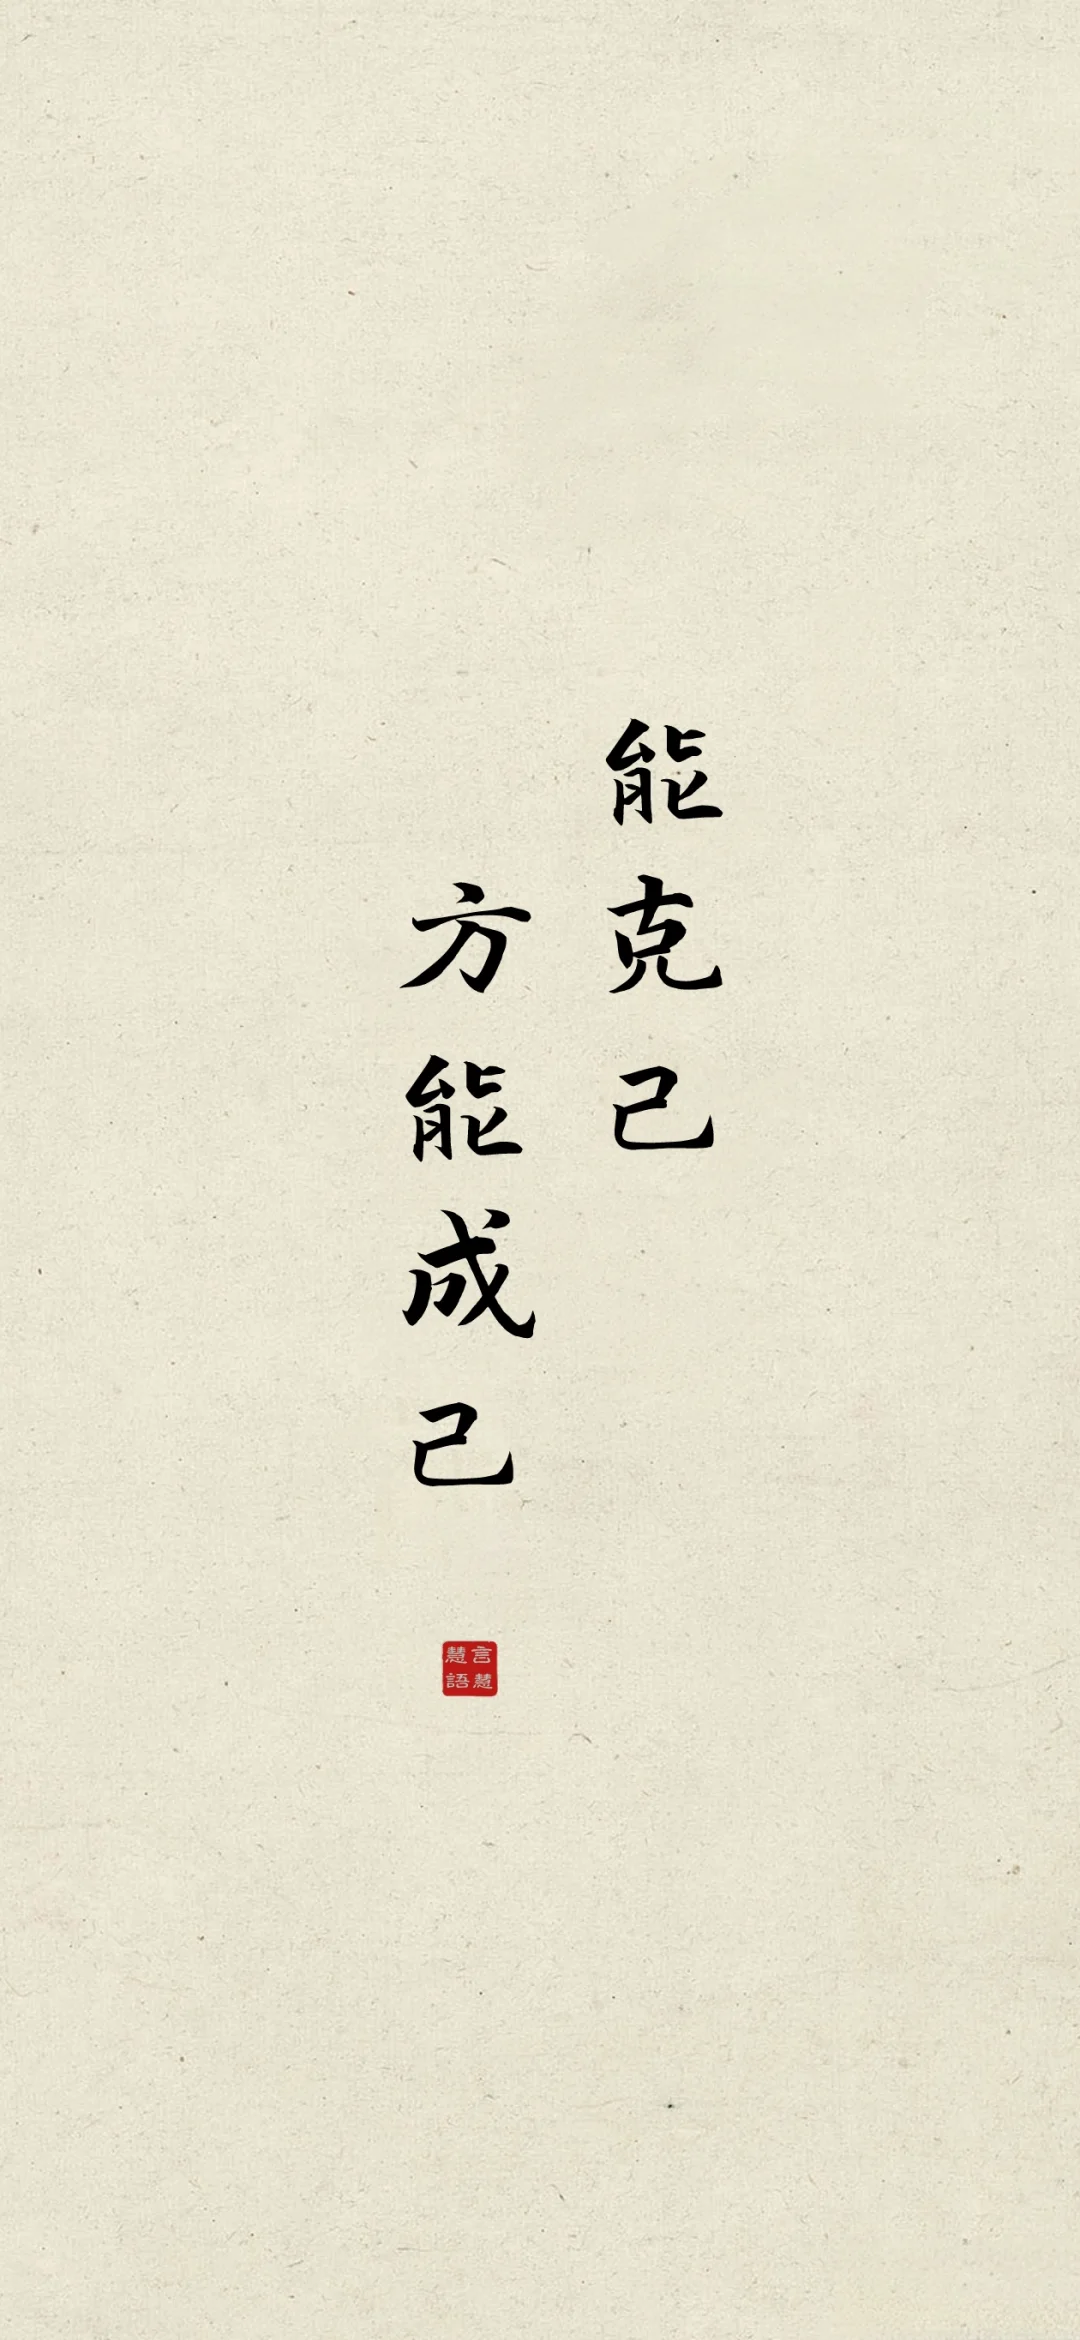 能克己
方能成己
言慧
慧語